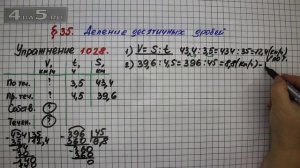 4 5.ru
§ 35. Деление десятичных дробей
Упражнение 1028.
1) V = S : t 43,4 : 3,5 = 434 : 35 = 12,4 (км/ч)
2) 39,6 : 4,5 = 396 : 45 = 8,8 (км/ч) –
V, t, S,
км/ч ч км
По теч. ? 3,5 43,4
Пр. теч. ? 4,5 39,6
Собств. ?
Течен. ?
434 35 396 45
35 12,4 360 8,8
84 360
70 360
140 0
140
0